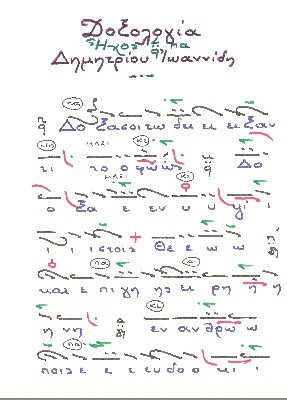 Δοξολογία
Ἦχος πα
Δημητρίου Ἰωαννίδη
Δο ξα σοι τω δει ει ει ξαν
τι το ο φω ως Δο
ο ξα ε εν υ υ ψι ι
ι ι ι στοις Θε ε ω ω
και ε πι γη ης ει ρη η η
η νη εν αν θρω ω
ποις ε ε ε ευ δο ο κι ι